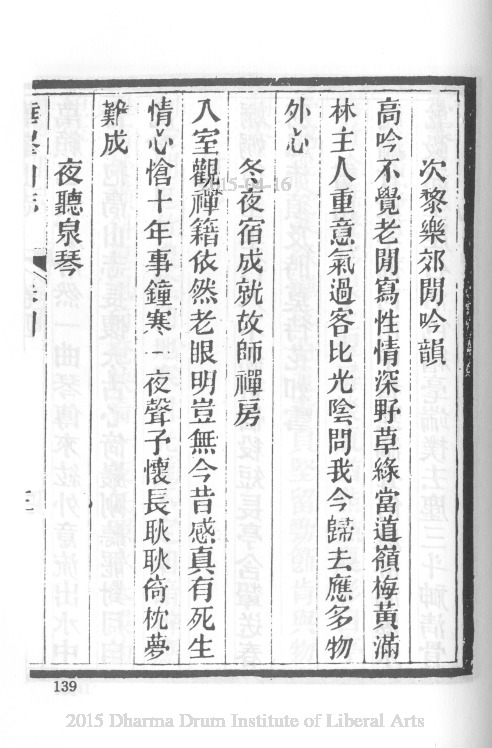 次黎樂郊閒吟韻
高吟不覺老閒寫性情深野草緣當道嶺梅黃滿
林主人重意氣過客比光陰問我今歸去應多物
外心
冬夜宿成就故師禪房
入室觀禪籍依然老眼明豈無今昔感真有死生
情心愴十年事鐘寒一夜聲予懷長耿耿倚枕夢
難成
夜聽泉琴
139
2015-04-16
2015 Dharma Drum Institute of Liberal Arts